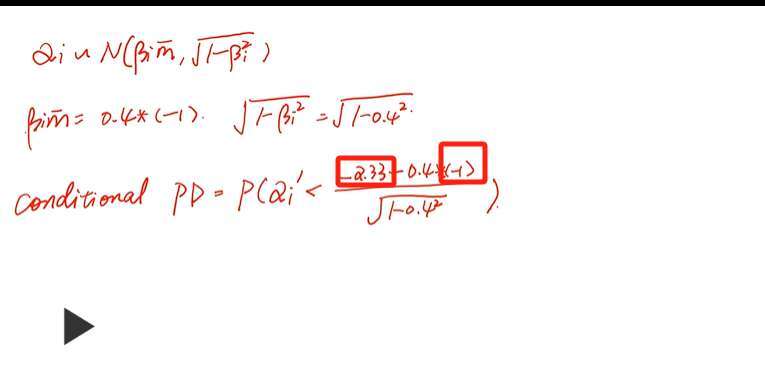 αi ~ N(βi m̄, √1-βi²)
βi m̄ = 0.4*(-1). √1-βi² = √1-0.4².
conditional PD = P(αi' < (-2.33 - 0.4*(-1))/√1-0.4²).